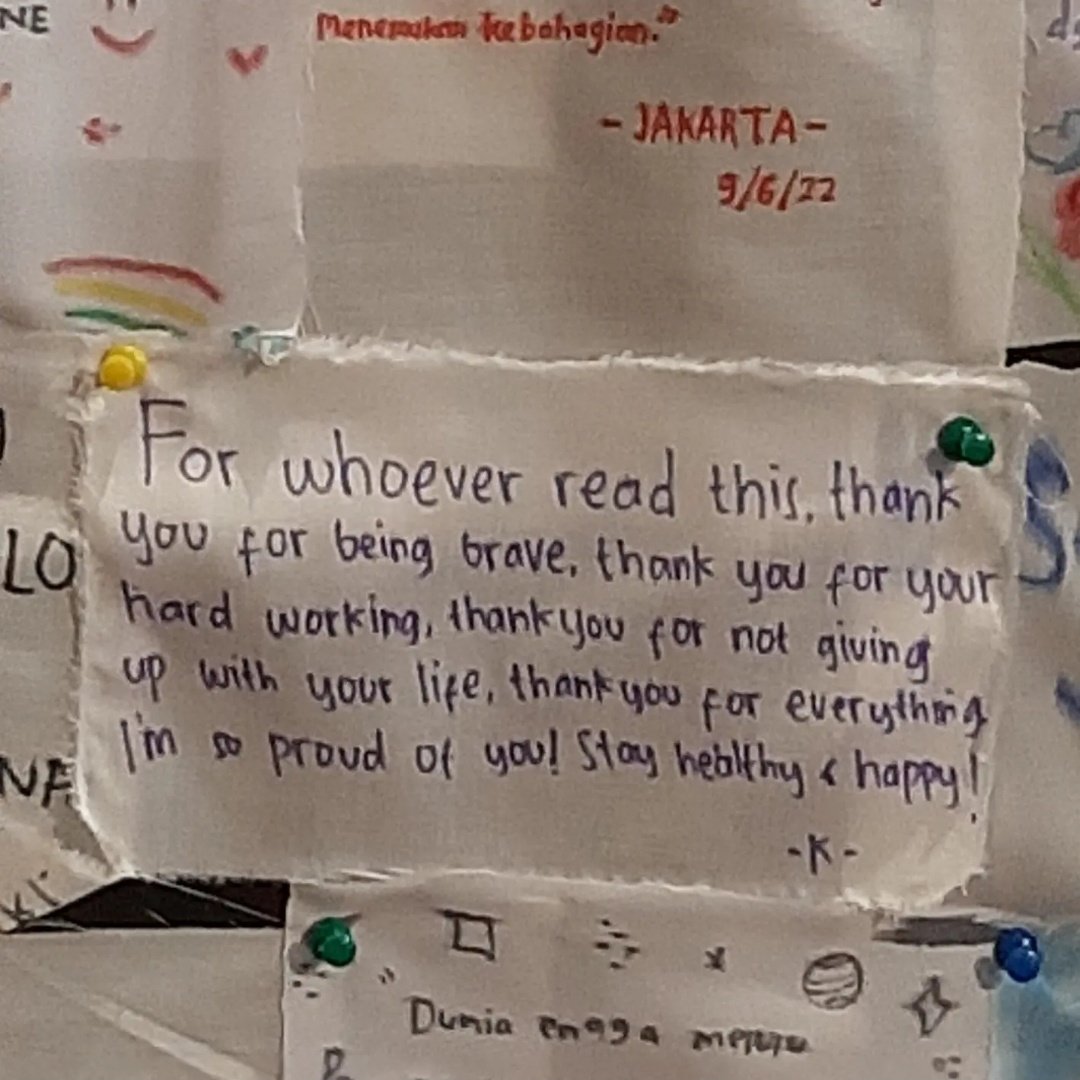 NE
Menemukan kebahagian."
- JAKARTA -
9/6/22
LO
For whoever read this, thank
you for being brave, thank you for your
hard working, thankyou for not giving
up with your life, thankyou for everything
I'm so proud of you! Stay healthy & happy!
-K-
NE
"Dunia engga